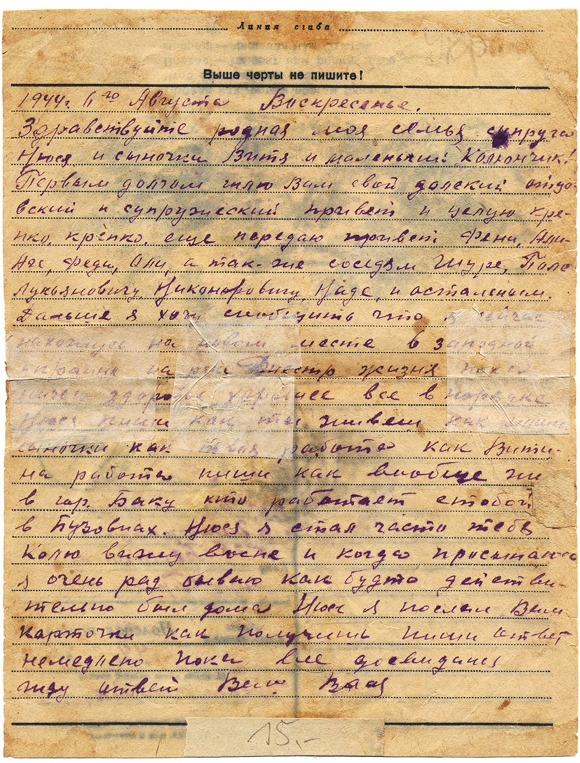 Линия сгиба
Выше черты не пишите!
1944г. 6го Августа Воскресенье.
Здравствуйте родная моя семья супруга
Нюся и сыночки Витя и маленький Колюнчик!
Первым долгом шлю Вам свой далский отцо-
вский и супружеский привет и целую кре-
пко, крепко, еще передаю привет Фени,
Феди, Али, а так-же соседям Шуре, Поле
Лукьяновичу, Никоноровичу, Наде, и остальным.
Дальше я хочу сообщить что я сейчас
нахожусь на новом месте в западной
украине на реки Днестр жизня пока
ничего здоровье хорошее все в порядке
Нюся пиши как ты живеш как наши
сыночки как твоя работа как Вити-
на работа пиши как вообще жи
в гор. Баку кто работает стобой
в Бузовнах. Нюся я стал часто тебе
Колю вижу восне и когда просыпаюсь
я очень рад бываю как будто действи-
тельно был дома Нюся я послал Вам
карточки как получишь пиши ответ
немедлено пока все досвидания
жду ответ Ваш Вася
15.-